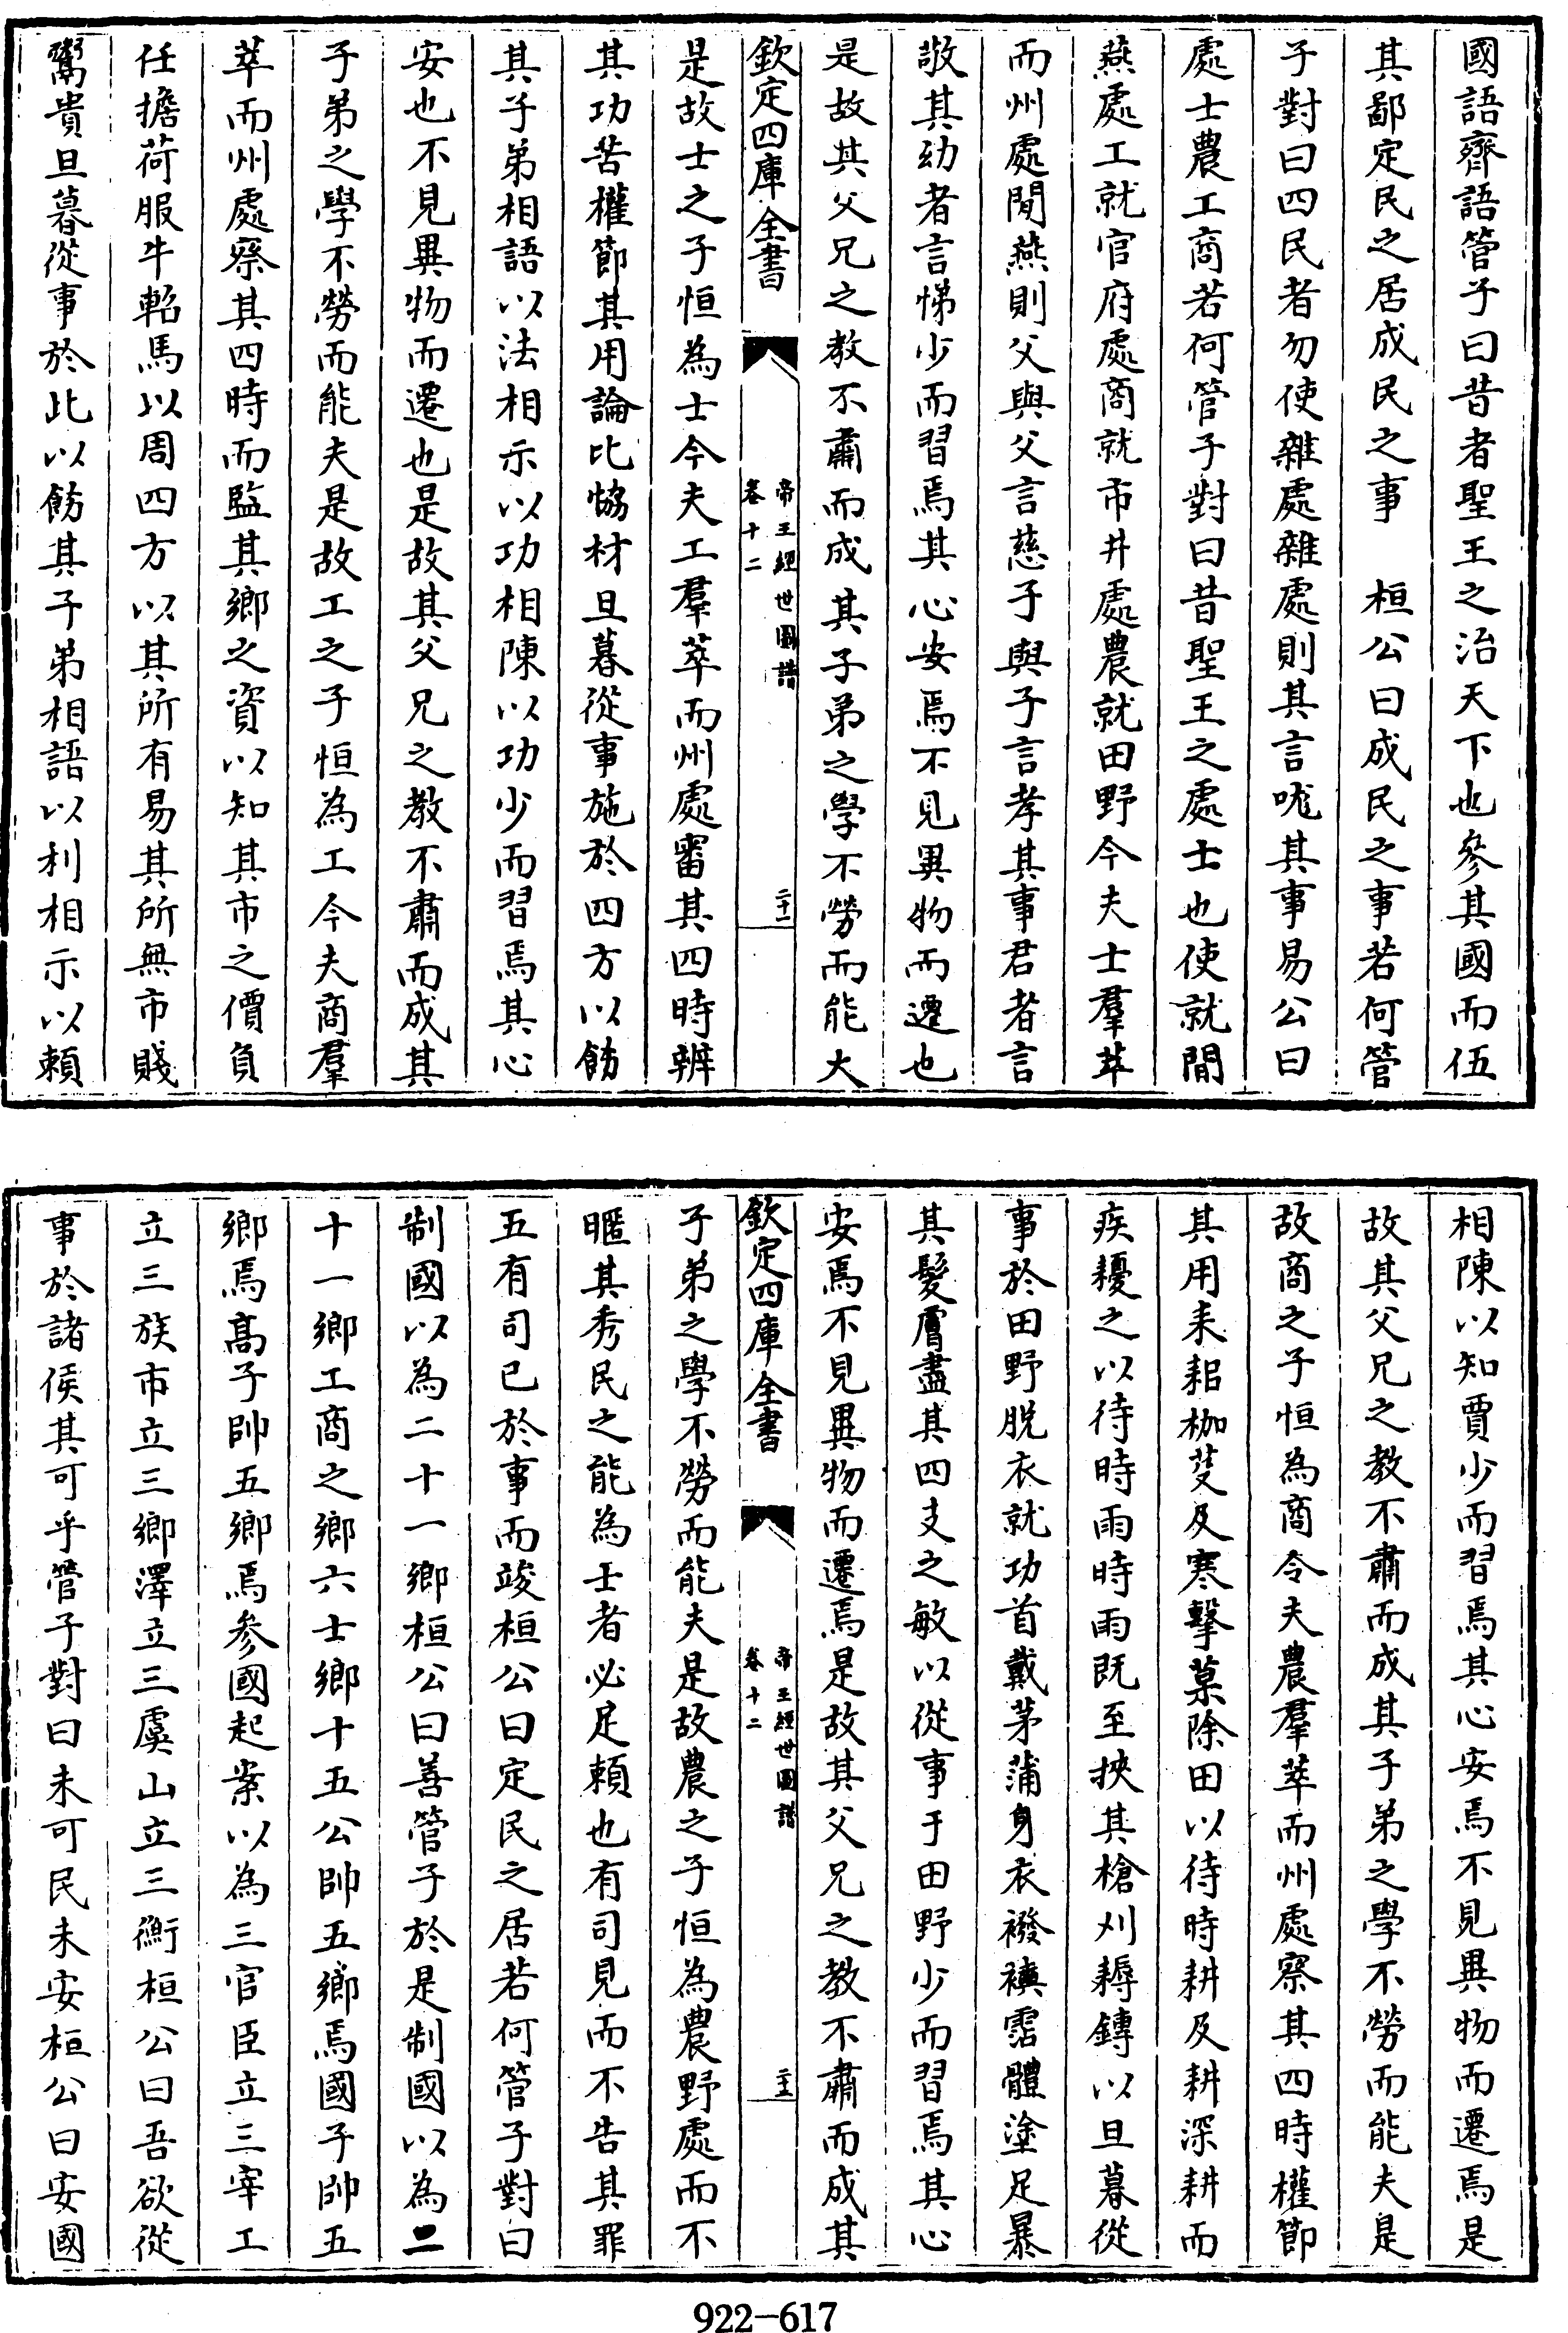 國語齊語管子曰昔者聖王之治天下也參其國而伍
其鄙定民之居成民之事　桓公曰成民之事若何管
子對曰四民者勿使雜處雜處則其言哤其事易公曰
處士農工商若何管子對曰昔聖王之處士也使就閒
燕處工就官府處商就市井處農就田野今夫士羣萃
而州處閒燕則父與父言慈子與子言孝其事君者言
敬其幼者言悌少而習焉其心安焉不見異物而遷也
是故其父兄之教不肅而成其子弟之學不勞而能大
欽定四庫全書
帝王經世圖譜
卷十二
二十一
是故士之子恒為士今夫工羣萃而州處審其四時辨
其功苦權節其用論比恊材旦暮從事施於四方以飭
其子弟相語以法相示以功相陳以功少而習焉其心
安也不見異物而遷也是故其父兄之教不肅而成其
子弟之學不勞而能夫是故工之子恒為工今夫商羣
萃而州處察其四時而監其鄉之資以知其市之價負
任擔荷服牛軺馬以周四方以其所有易其所無市賤
鬻貴旦暮從事於此以飭其子弟相語以利相示以賴
相陳以知賈少而習焉其心安焉不見異物而遷焉是
故其父兄之教不肅而成其子弟之學不勞而能夫是
故商之子恒為商令夫農羣萃而州處察其四時權節
其用耒耜枷芟及寒擊菒除田以待時耕及耕深耕而
疾耰之以待時雨時雨既至挾其槍刈耨鎛以旦暮從
事於田野脫衣就功首戴茅蒲身衣襏襫霑體塗足暴
其髮膚盡其四支之敏以從事于田野少而習焉其心
安焉不見異物而遷焉是故其父兄之教不肅而成其
欽定四庫全書
帝王經世圖譜
卷十二
子弟之學不勞而能夫是故農之子恒為農野處而不
暱其秀民之能為士者必足賴也有司見而不告其罪
五有司已於事而竣桓公曰定民之居若何管子對曰
制國以為二十一鄉桓公曰善管子於是制國以為二
十一鄉工商之鄉六士鄉十五公帥五鄉焉國子帥五
鄉焉高子帥五鄉焉參國起案以為三官臣立三宰工
立三族市立三鄉澤立三虞山立三衡桓公曰吾欲從
事於諸侯其可乎管子對曰未可民未安桓公曰安國
922-617